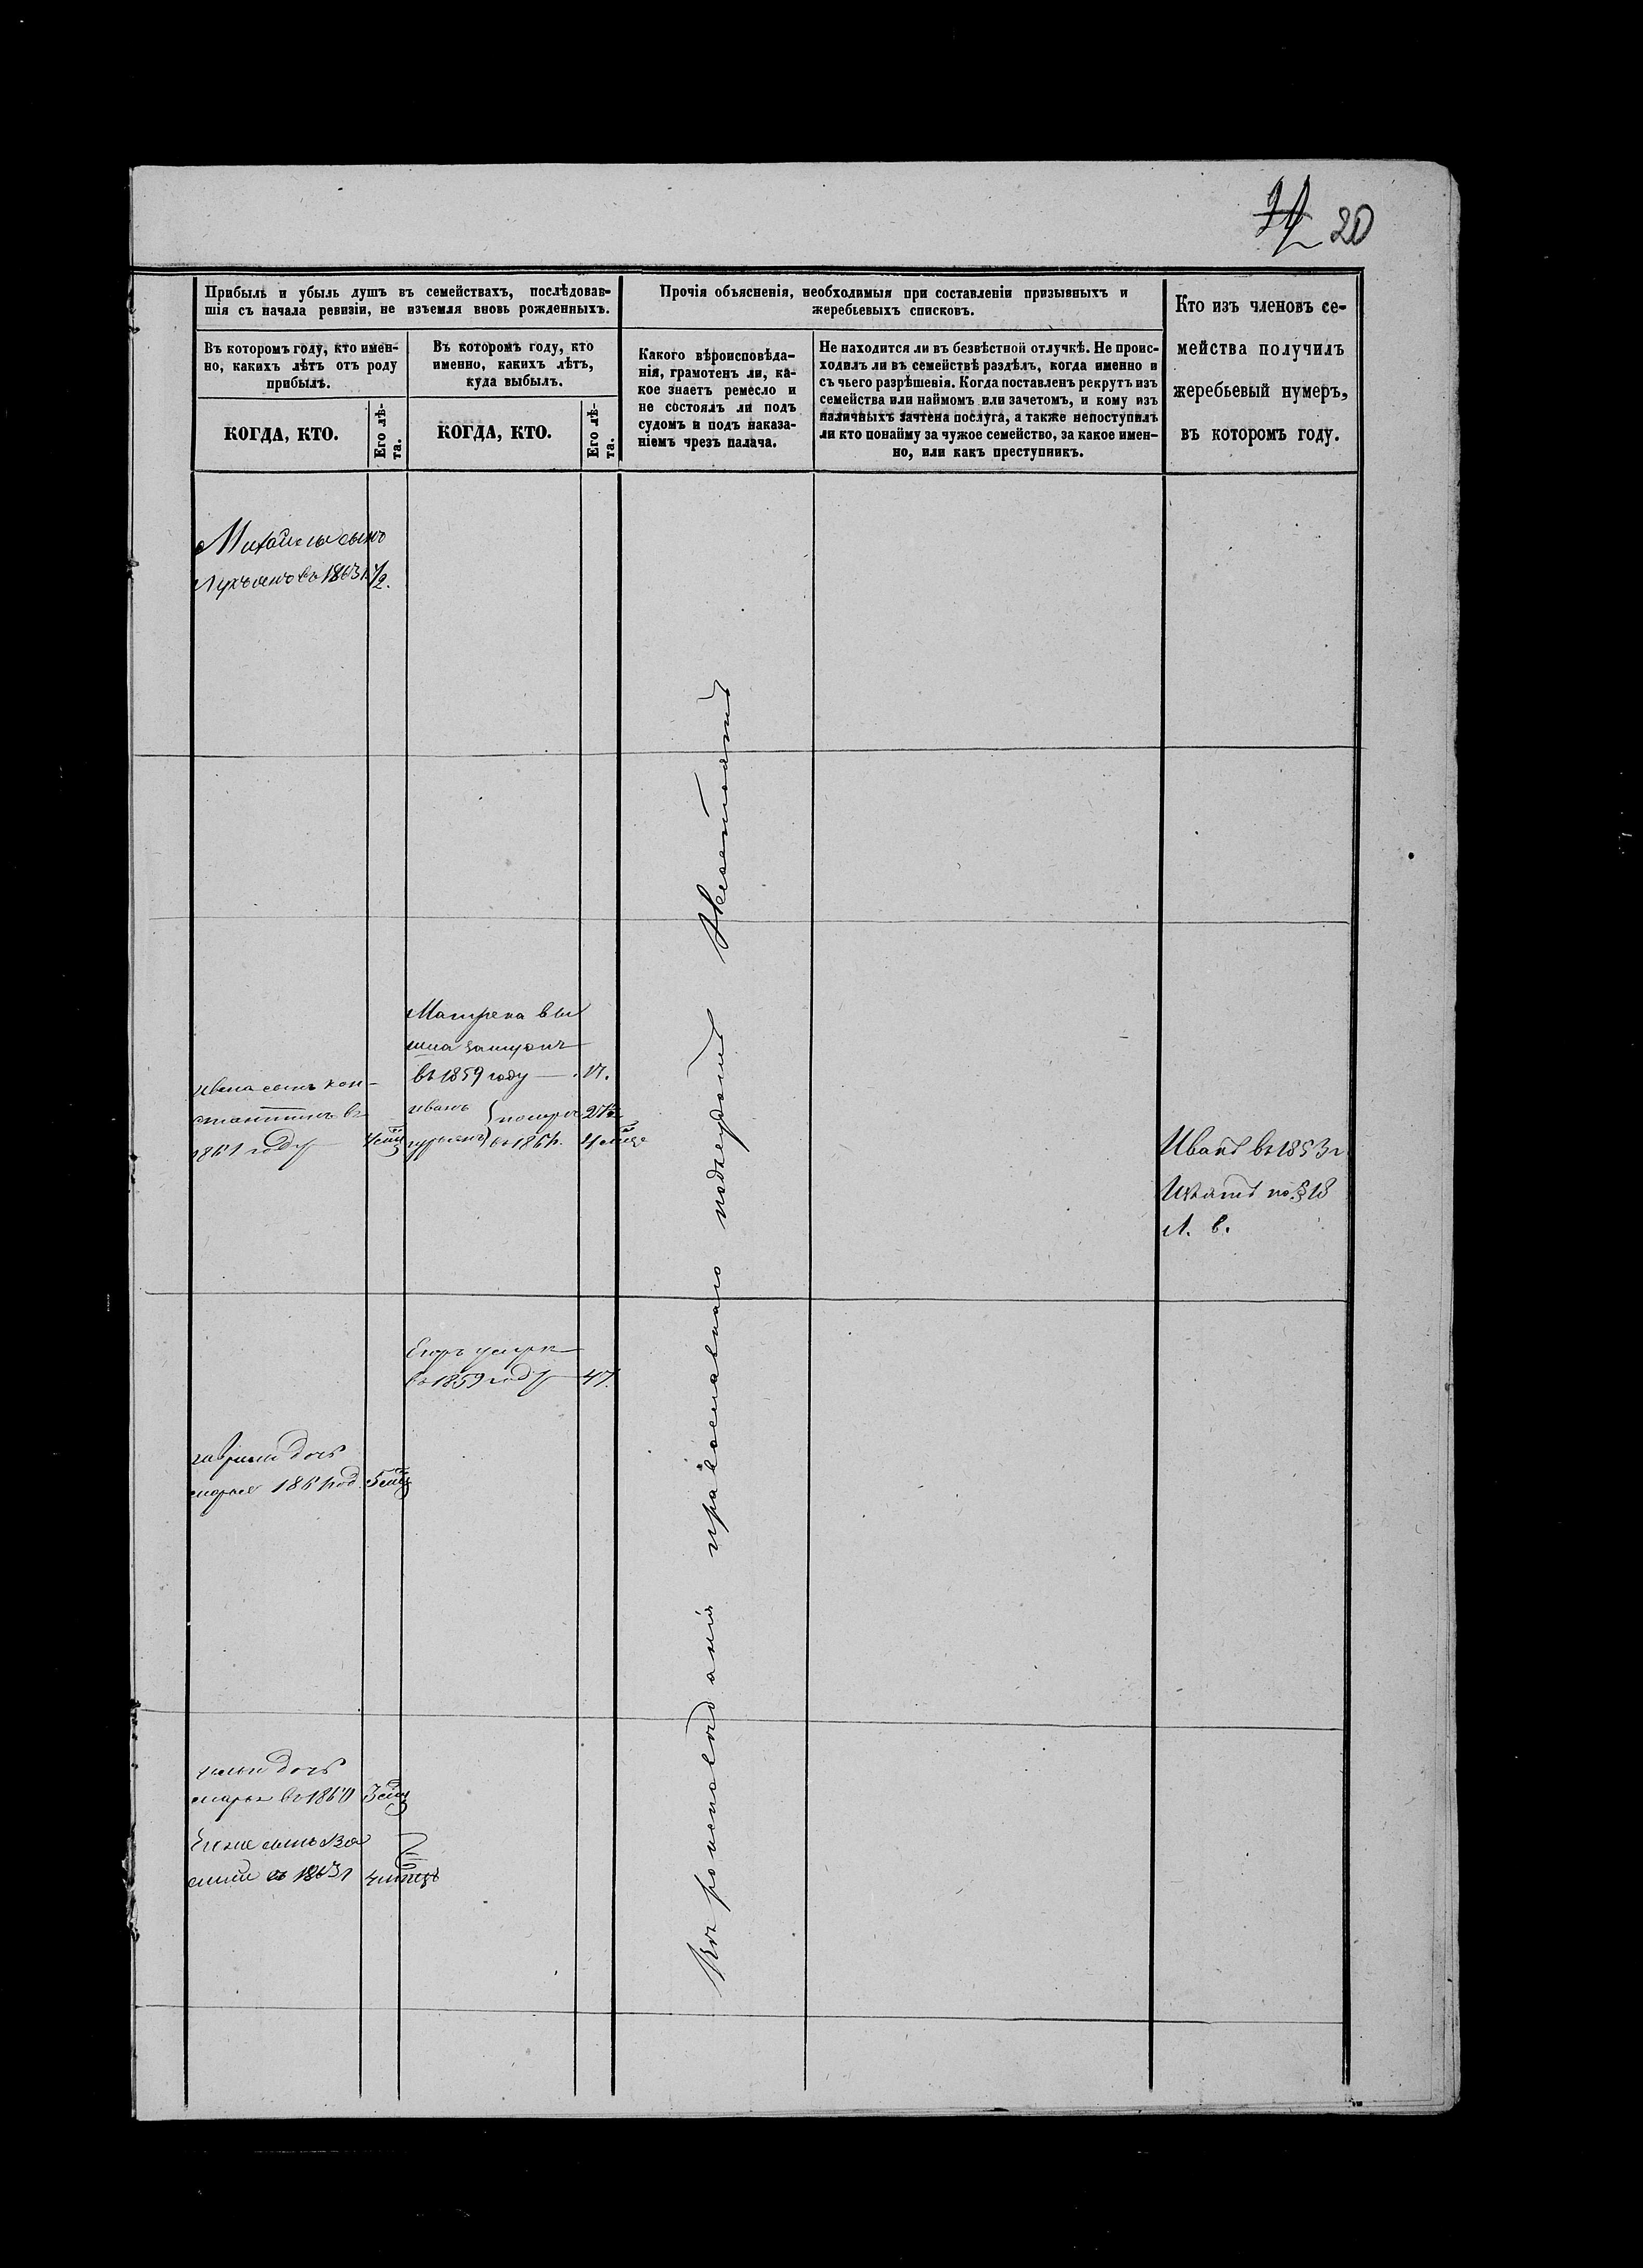 20
Прибыль и убыль душъ въ семействахъ, послѣдовав-
шія съ начала ревизіи, не изъемля вновь рожденныхъ.
Прочія объясненія, необходимыя при составленіи призывныхъ и
жеребьевыхъ списковъ.
Кто изъ членовъ се-
мейства получилъ
жеребьевый нумеръ,
въ которомъ году.
Въ которомъ году, кто имен-
но, какихъ лѣтъ отъ роду
прибылъ.
Въ которомъ году, кто
именно, какихъ лѣтъ,
куда выбылъ.
Какого вѣроисповѣда-
нія, грамотенъ ли, ка-
кое знаетъ ремесло и
не состоялъ ли подъ
судомъ и подъ наказа-
ніемъ чрезъ палача.
Не находится ли въ безвѣстной отлучкѣ. Не проис-
ходилъ ли въ семействѣ раздѣлъ, когда именно и
съ чьего разрѣшенія. Когда поставленъ рекрутъ изъ
семейства или наймомъ или зачетомъ, и кому изъ
наличныхъ зачтена послуга, а также непоступилъ
ли кто понайму за чужое семейство, за какое имен-
но, или какъ преступникъ.
КОГДА, КТО.
Его лѣ-
та.
КОГДА, КТО.
Его лѣ-
та.
Михайла сынъ
Лукъянъ въ 1863 г 1/2.
Матрена вы
шла замужъ
въ 1859 году 17.
Ивана сынъ кон-
стантинъ въ
1861 году
иванъ
помер 27
въ 1861
Иванъ въ 1853 г
Изъятъ по § 18
Л. в.
Егоръ умеръ
въ 1859 году 47.
гаврилы дочь
марья 1861 год
дочь
марья въ 1860
сынъ Ва
силий въ 1863 г
Вѣроисповѣданія православнаго подъсудомъ несостоятъ